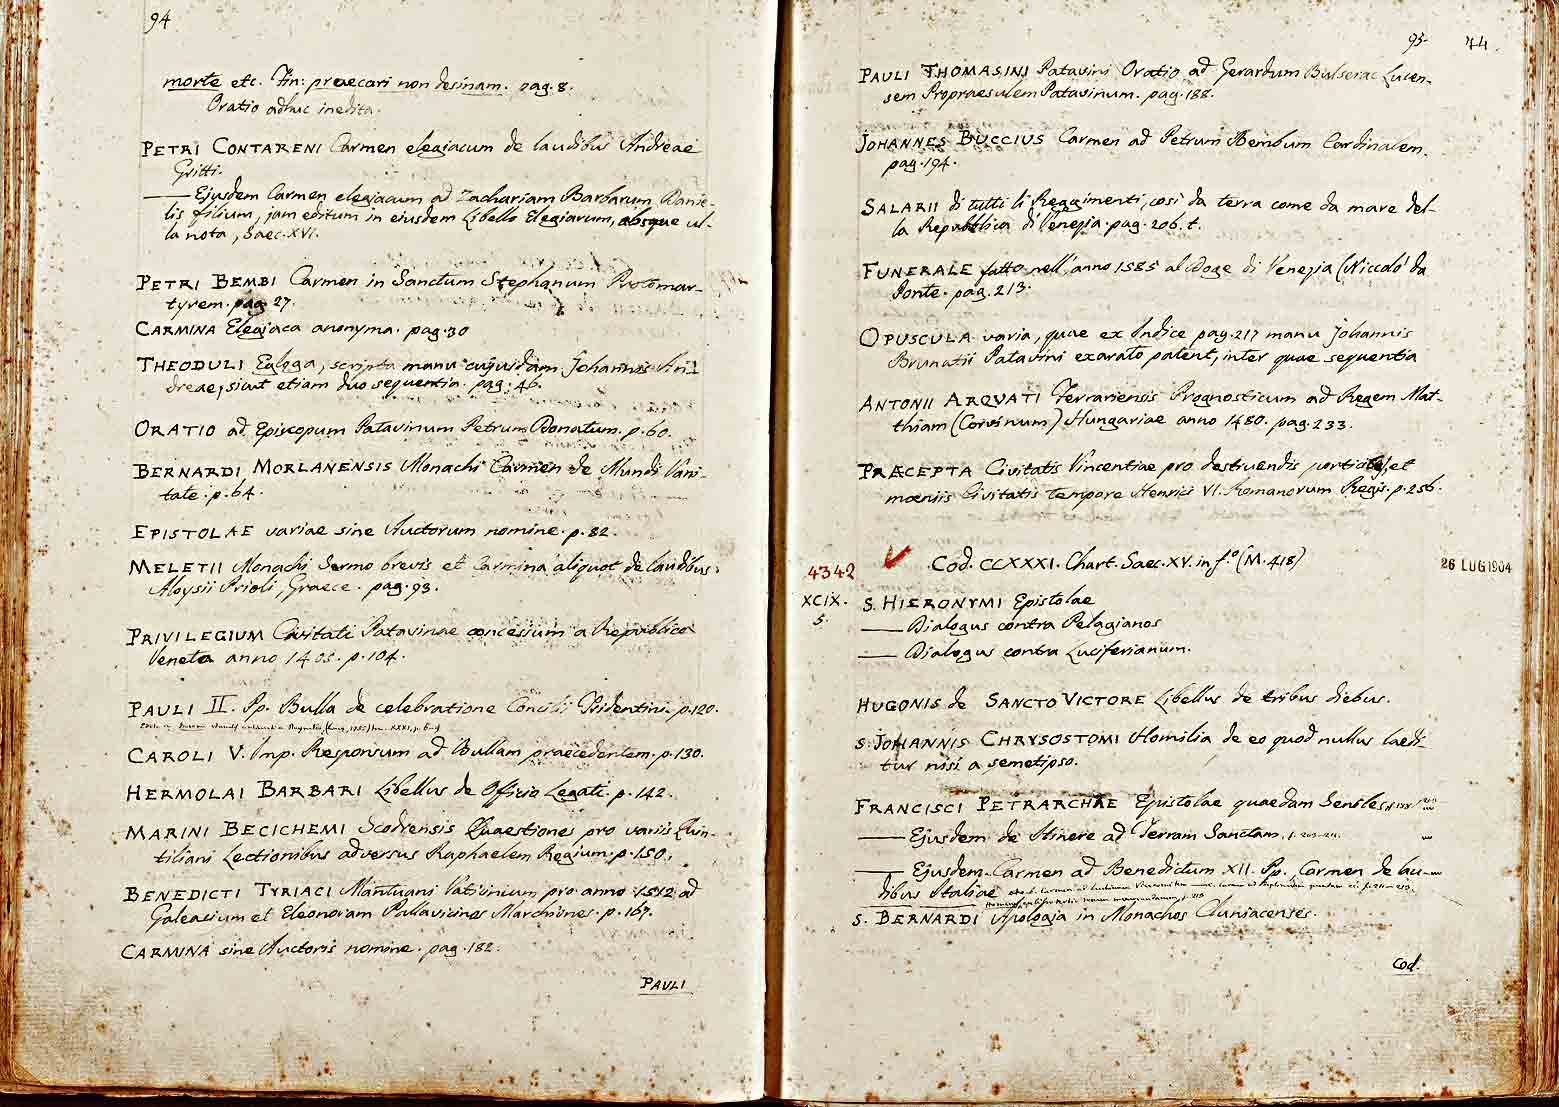 94
morte etc. Fin: praecari non desinam. pag. 8.
Oratio adhuc inedita.
PETRI CONTARENI Carmen elegiacum de laudibus Andreae
Gritti.
— Ejusdem Carmen elegiacum ad Zachariam Barbarum Danie-
lis filium, jam editum in ejusdem Libello Elegiarum, absque ul-
la nota, Saec. XVI.
PETRI BEMBI Carmen in Sanctum Stephanum Protomar-
tyrem. pag. 27.
CARMINA Elegiaca anonyma. pag. 30
THEODULI Egloga, scripta manu cujusdam Johannis An-
dreae, sicut etiam duo sequentia. pag. 46.
ORATIO ad Episcopum Patavinum Petrum Donatum. p. 60.
BERNARDI MORLANENSIS Monachi Carmen de Mundi Vani-
tate. p. 64.
EPISTOLAE variae sine Auctorum nomine. p. 82.
MELETII Monachi Sermo brevis et Carmina aliquot de laudibus
Aloysii Prioli, Graece. pag. 93.
PRIVILEGIUM Civitati Patavinae concessum a Republica
Veneta anno 1405. p. 104.
PAULI II. Pp. Bulla de celebratione Concilii Tridentini. p. 120.
CAROLI V. Imp. Responsum ad Bullam praecedentem. p. 130.
HERMOLAI BARBARI Libellus de Officio Legati. p. 142.
MARINI BECICHEMI Scodrensis Quaestiones pro variis Quin-
tiliani Lectionibus adversus Raphaelem Regium. p. 150.
BENEDICTI TYRIACI Mantuani Vaticinium pro anno 1512 ad
Galeacium et Eleonoram Pallavicinos Marchiones. p. 167.
CARMINA sine Auctoris nomine. pag. 182.
PAULI
95. 44.
PAULI THOMASINI Patavini Oratio ad Gerardum Bulserac Lucen-
sem Propraesulem Patavinum. pag. 188.
JOHANNES BUCCIUS Carmen ad Petrum Bembum Cardinalem.
pag. 194.
SALARII di tutti li Reggimenti, così da terra come da mare del-
la Repubblica di Venezia. pag. 206. t.
FUNERALE fatto nell'anno 1585 al Doge di Venezia (Niccolò da
Ponte. pag. 213.
OPUSCULA varia, quae ex Indice pag. 217 manu Johannis
Brunatii Patavini exarato patent, inter quae sequentia
ANTONII ARQUATI Ferrariensis Prognosticum ad Regem Mat-
thiam (Corvinum) Hungariae anno 1480. pag. 233.
PRAECEPTA Civitatis Vincentiae pro destruendis et
moeniis Civitatis tempore Henrici VI. Romanorum Regis. p. 256.
4342 ✓ Cod. CCXXXI. Chart. Saec. XV. in f.º (M. 418) 26 LUG 1904
XCIX. S. HIERONYMI Epistolae
5. — Dialogus contra Pelagianos
— Dialogus contra Luciferianum.
HUGONIS de SANCTO VICTORE Libellus de tribus diebus.
S. JOHANNIS CHRYSOSTOMI Homilia de eo quod nullus laedi-
tur nisi a semetipso.
FRANCISCI PETRARCHAE Epistolae quaedam Seniles
— Ejusdem de Itinere ad Terram Sanctam.
— Ejusdem Carmen ad Benedictum XII. Pp., Carmen de lau-
dibus Italiae
S. BERNARDI Apologia in Monachos Cluniacenses.
Cod.